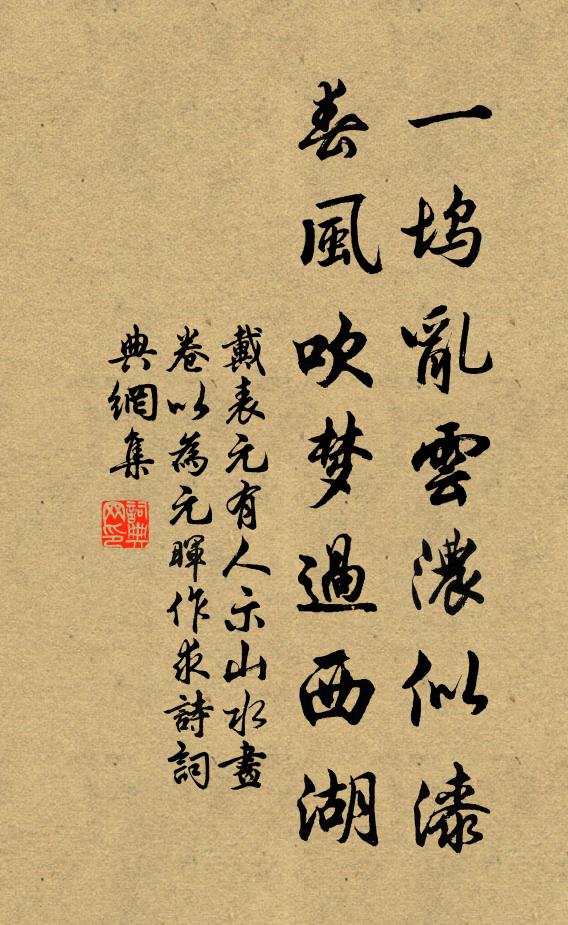 一塢亂雲濃似漆
春風吹梦過西湖
戴表元有人示山水畫
卷以為元暉作求詩詞
典網集
詞典
网印